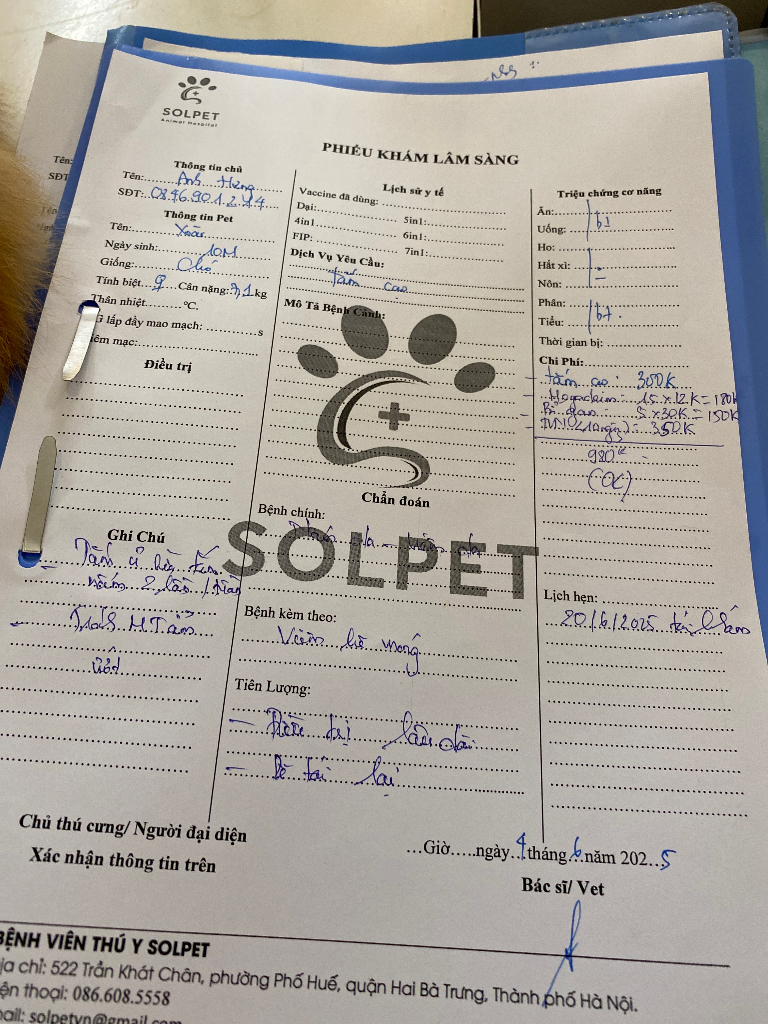 SOLPET
Animal Hospital
PHIẾU KHÁM LÂM SÀNG
Thông tin chủ
Tên: Anh Hưng
SĐT: 0876.901.274
Thông tin Pet
Tên:
Ngày sinh: 10M
Giống: Chó
Tính biệt ♀ Cân nặng: kg
Thân nhiệt °C.
lấp đầy mao mạch: s
iêm mạc:
Điều trị
Ghi Chú
2 lần / tuần
- Tránh
ướt
Lịch sử y tế
Vaccine đã dùng:
Dại: 5in1:
4in1 6in1:
FIP: 7in1:
Dịch Vụ Yêu Cầu:
Tắm cạo
Mô Tả Bệnh Cảnh:
Chẩn đoán
Bệnh chính:
SOLPET
Bệnh kèm theo:
Viêm
Tiên Lượng:
- Điều trị lâu dài
- Dễ tái lại
Triệu chứng cơ năng
Ăn:
Uống: bt
Ho:
Hắt xì: -
Nôn:
Phân:
Tiểu: bt.
Thời gian bị:
Chi Phí:
- Tắm cạo: 300K
15 x 12K = 180K
5 x 30K = 150K
350K
980K
(CK)
Lịch hẹn:
20/6/2025 tái khám
Chủ thú cưng/ Người đại diện
Xác nhận thông tin trên
…Giờ…..ngày 4 tháng 6 năm 2025
Bác sĩ/ Vet
BỆNH VIỆN THÚ Y SOLPET
ịa chỉ: 522 Trần Khát Chân, phường Phố Huế, quận Hai Bà Trưng, Thành phố Hà Nội.
ện thoại: 086.608.5558
ail: solpetvn@gmail.com
Tên:
SĐT